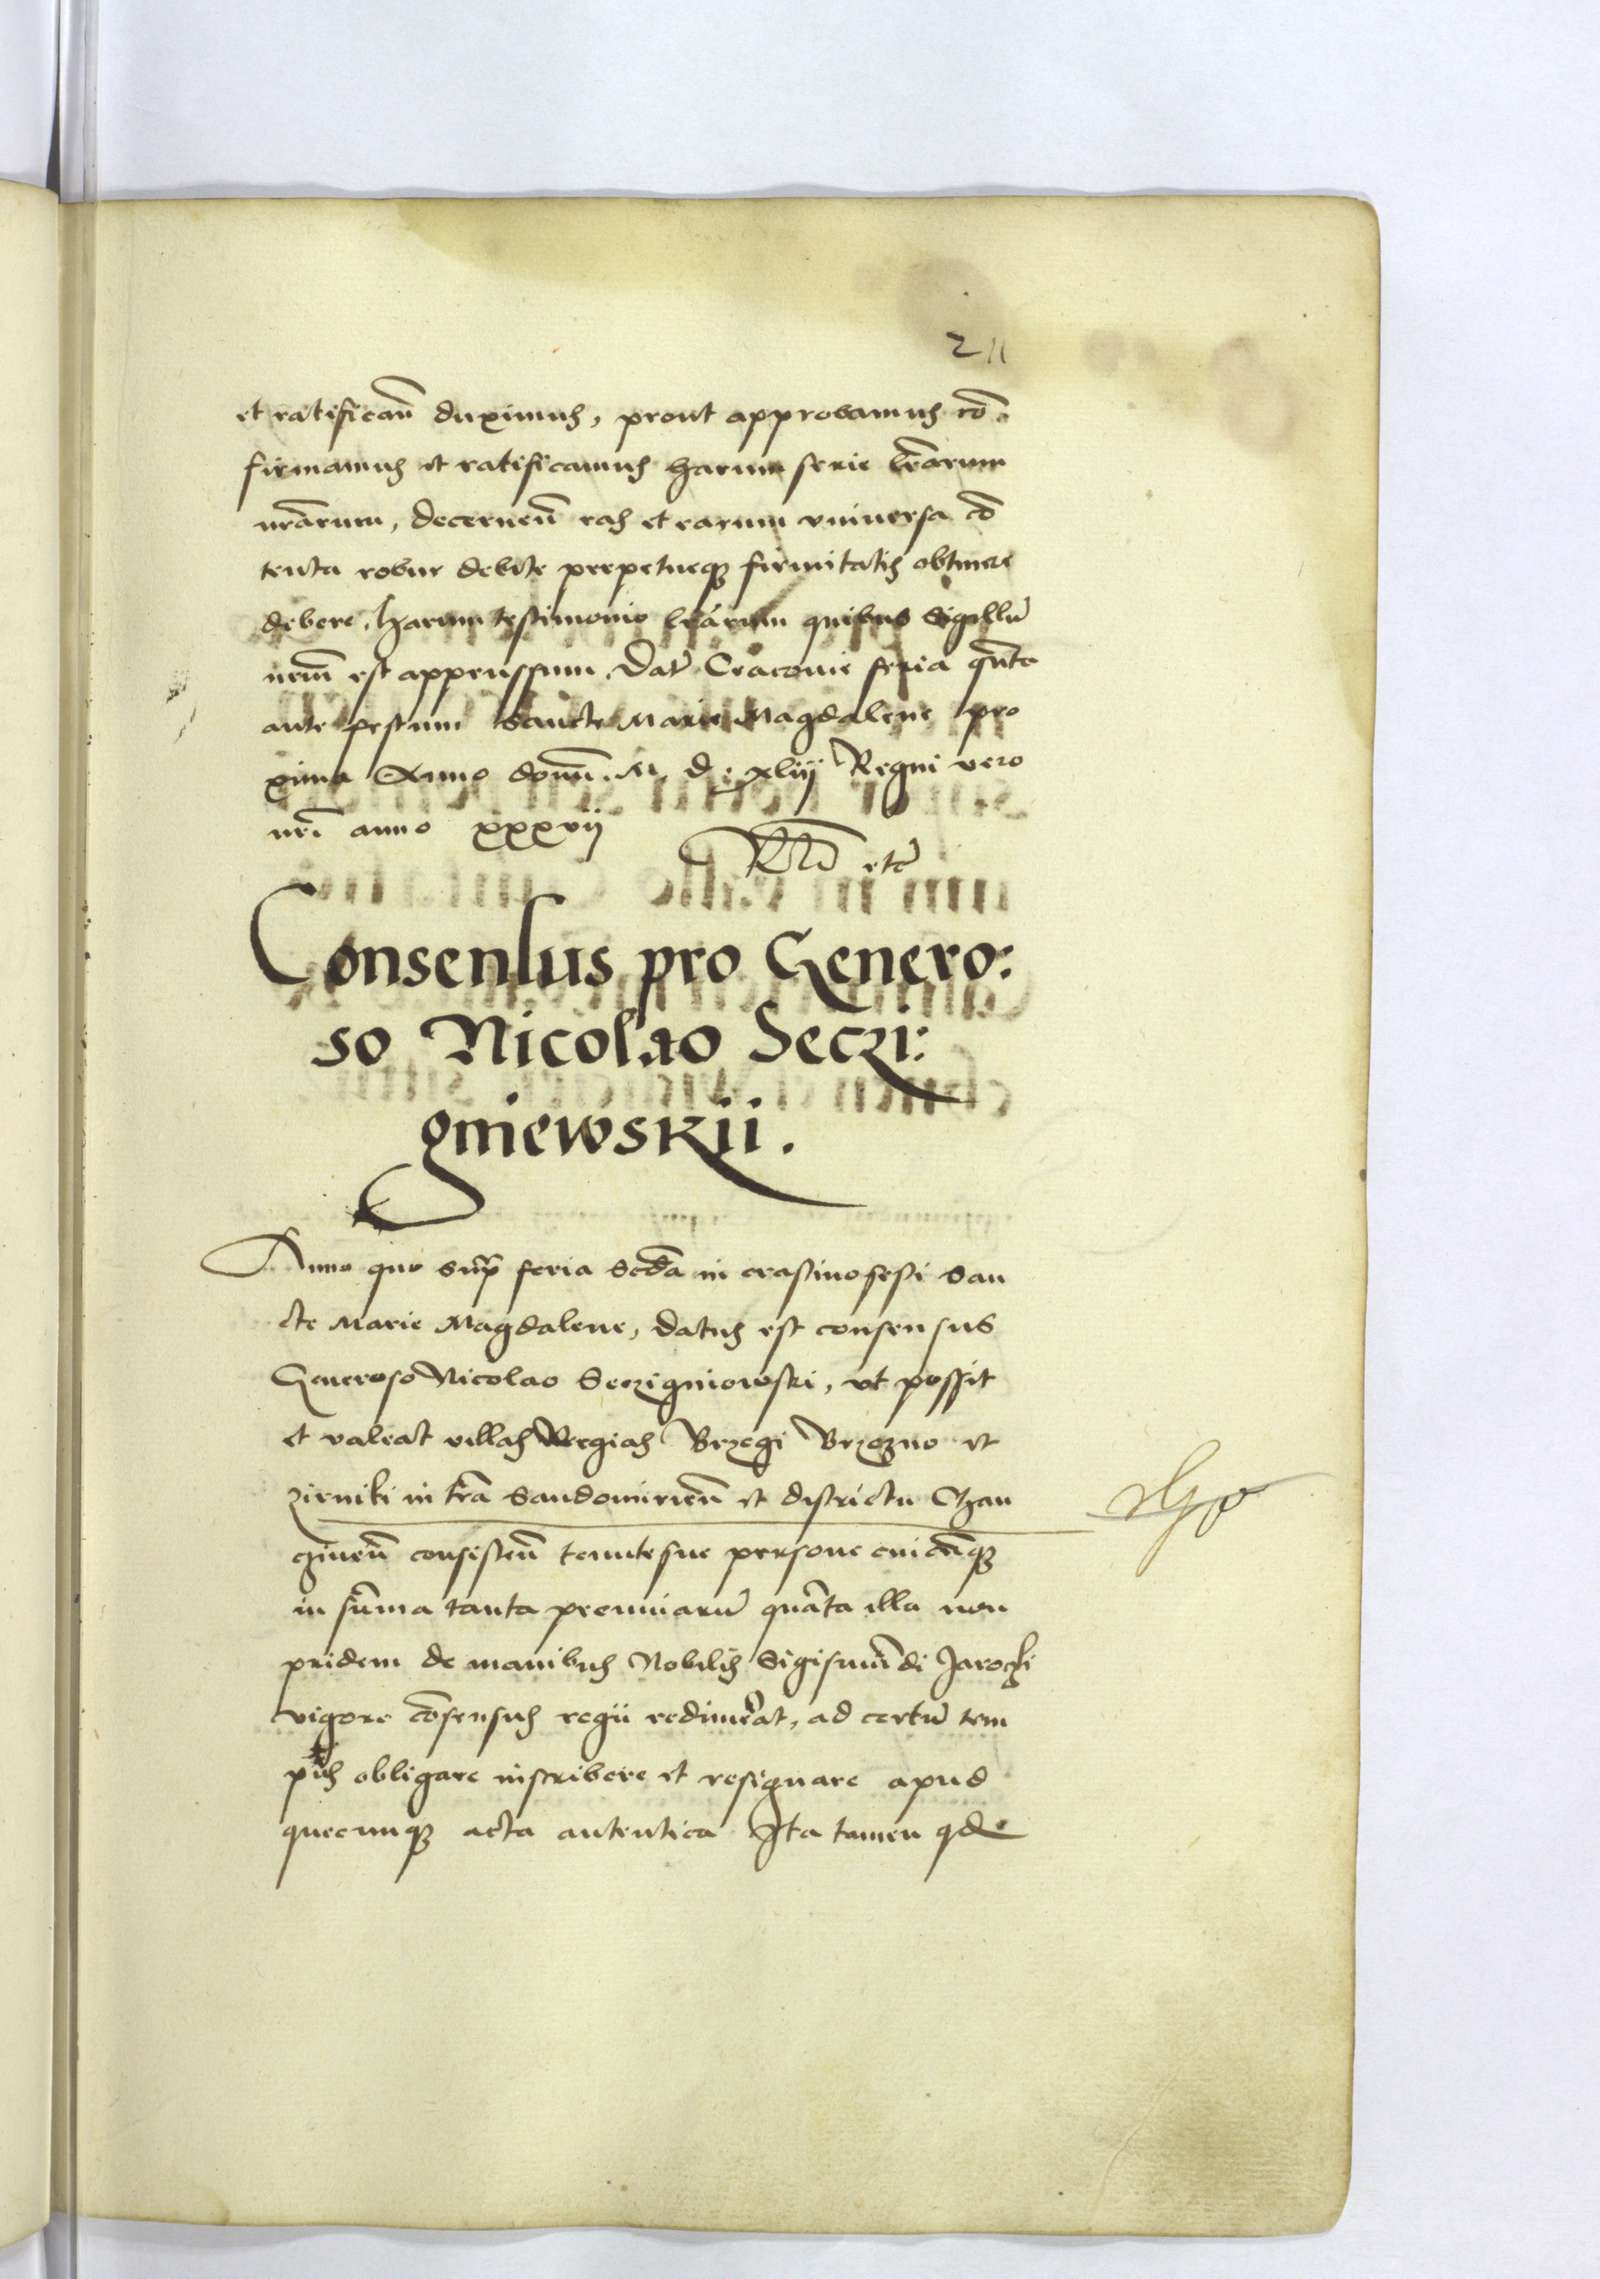 211
et ratifican̄ duximus, prout approbamus cō
firmamus et ratificamus harum serie lr̄arum
nr̄arum, decernen̄ eas et earum vniuersa cō
tenta robur debite perpetueqȝ firmitatis obtinere
debere. Harum testimonio lr̄arum quibus Sigillū
nr̄m est appenssum. Dat̄ Cracouie feria qn̄ta
ante festum Sancte Marie Magdalene pro
xima Anno domī. M. d. xliij Regni vero
nrī anno xxxvij
Rl̄o etc̄
Consensus pro Genero:
so Nicolao Seczi:
gniewskii.
Anno quo supr̄ feria Scd̄a in crastino festi San
cte Marie Magdalene, datus est consensus
Generoso Nicolao Seczigniowski, vt possit
et valeat villas Regias Brzegi Brzezno et
zierniki in tr̄a Sandomirien̄ et districtu Chan
czinen̄ consisten̄ tenute sue persone cuicūqȝ
in sūma tanta pecuniarū quāta illa non
pridem de manibus Nobilis Sigismūdi Jarocki
vigore cōsensus regii redimerat, ad certū tem
pus obligare inscribere et resignare apud
quecunqȝ acta autentica Ita tamen qd